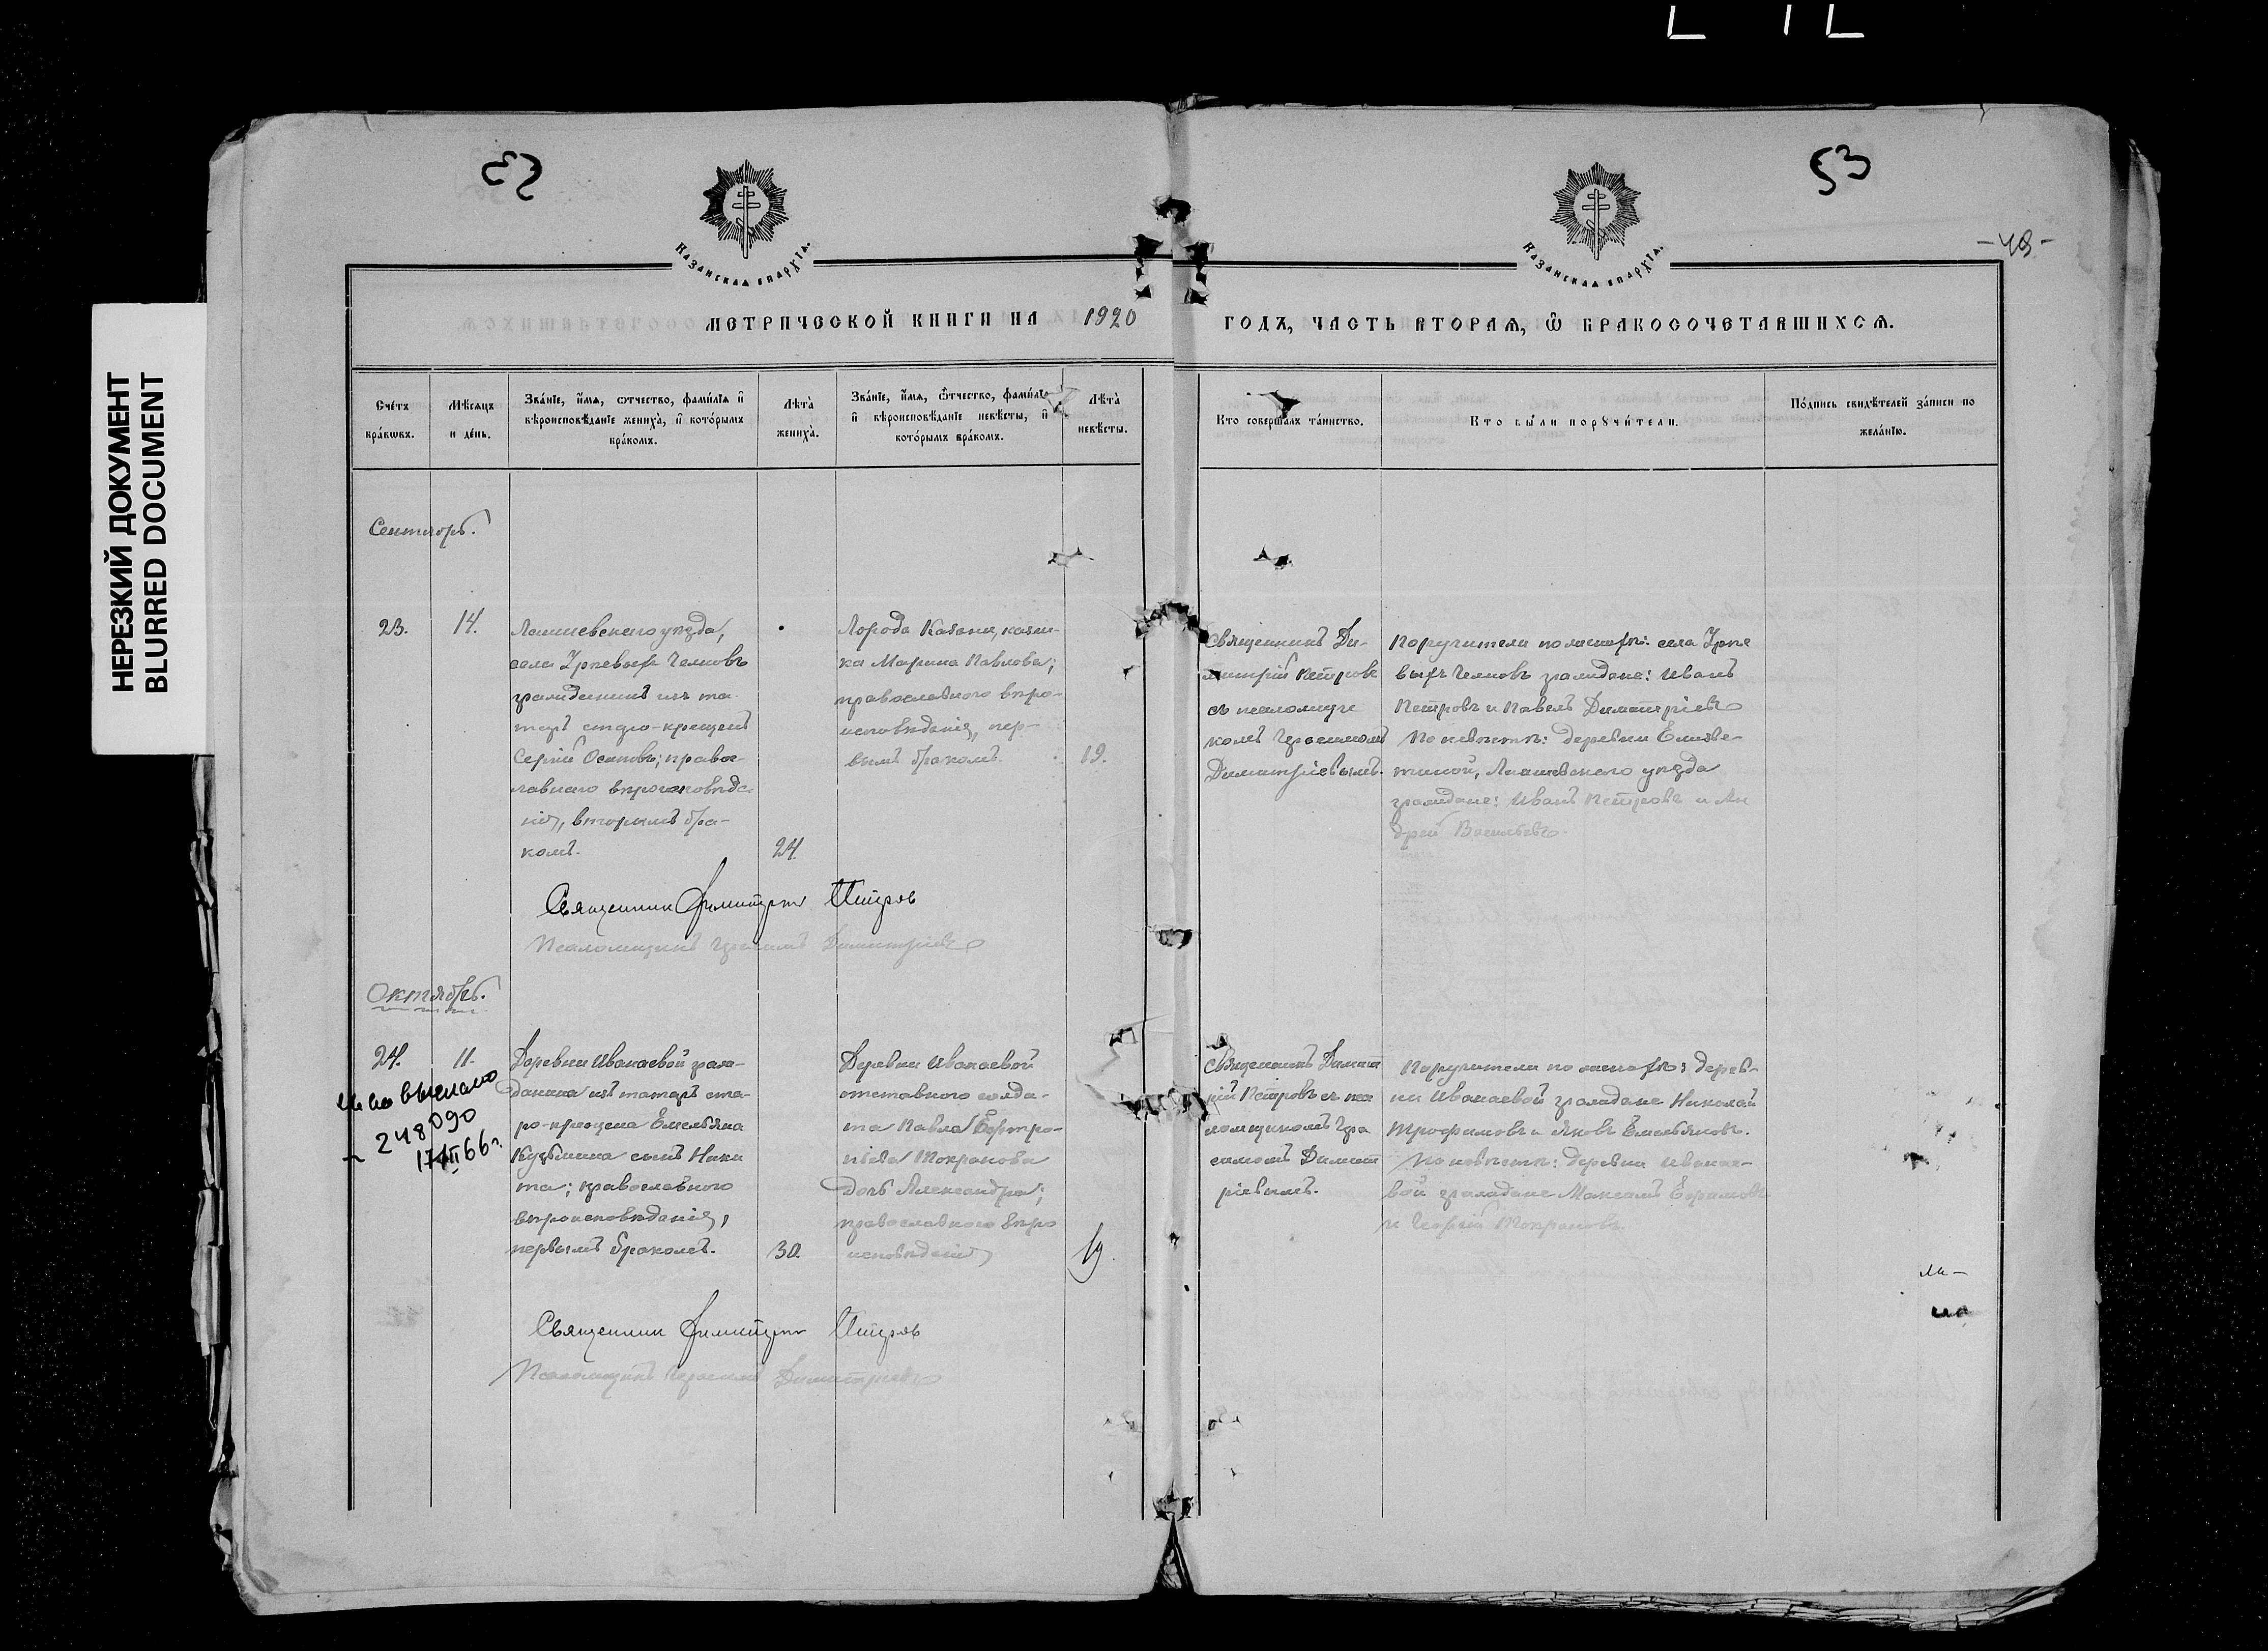 НЕРЕЗКИЙ ДОКУМЕНТ
BLURRED DOCUMENT
53
53
-49-
КАЗАНСКАЯ ЕПАРХІА.
КАЗАНСКАЯ ЕПАРХІА.
МЕТРИЧЕСКОЙ КНИГИ НА 1920
ГОДЪ, ЧАСТЬ ВТОРАЯ, Ѿ БРАКОСОЧЕТАВШИХСЯ.
Сче́тъ бра́кѡвъ.
Мѣ́сяцъ и де́нь.
Зва́нїе, и҆́мя, ѻ҆тчество, фами́лїя и҆ вѣроисповѣ́данїе жениха̀, и҆ кото́рымъ бра́комъ.
Лѣта̀ жениха̀.
Зва́нїе, и҆́мя, ѻ҆́тчество, фами́лїя и҆ вѣроисповѣ́данїе невѣ́сты, и҆ кото́рымъ бра́комъ.
Лѣта̀ невѣ́сты.
Кто соверша́лъ та́инство.
Кто бы́ли порꙋчи́тели.
По́дпись свидѣ́телей за́писи по жела́нїю.
Сентябрь.
23.
14.
Лаишевскаго уѣзда,
села Урѣевыхъ Челновъ
гражданинъ изъ та-
таръ старо-крещенъ
Сергій Осиповъ; правос-
лавнаго вѣроисповѣда
нія, вторымъ бра-
комъ.
24.
Города Казани,
Марина Павлова;
православного вѣро-
исповѣданія, пер-
вымъ бракомъ.
19.
Священникъ Ди-
митрій Петровъ
съ псаломщи
комъ Герасимомъ
Димитріевымъ.
Поручители по женихѣ: села Урѣе
выхъ Челновъ граждане: Иванъ
Петровъ и Павелъ Димитріевъ
По невѣстѣ: деревни
Лаишевскаго уѣзда
граждане: Иванъ Петровъ и Ан
дрей Васильевъ.
Священник Димитрий Петров
Псаломщикъ Герасимъ Димитріевъ
Октябрь.
24.
11.
выслано
248090
17/III 66 г.
Деревни Иванаевой граж-
данина изъ татаръ ста-
ро-крещена Емельяна
Кузьмина сынъ Ники
та; православного
вѣроисповѣданія,
первымъ бракомъ.
30.
Деревни Иванаевой
отставного солда-
та Павла
Мокранова
дочь Александра;
православного вѣро
исповѣданія
19.
Священникъ Димит
рій Петровъ съ пса
ломщикомъ Гера
симомъ Димит
ріевымъ.
Поручители по женихѣ: дерев-
ни Иванаевой граждане Николай
Трофимовъ и Яковъ Емельяновъ.
По невѣстѣ: деревни Иванае-
вой граждане Максимъ Ефремовъ
и Георгій Мокрановъ.
Священник Димитрий Петров
Псаломщикъ Герасимъ Димитріевъ